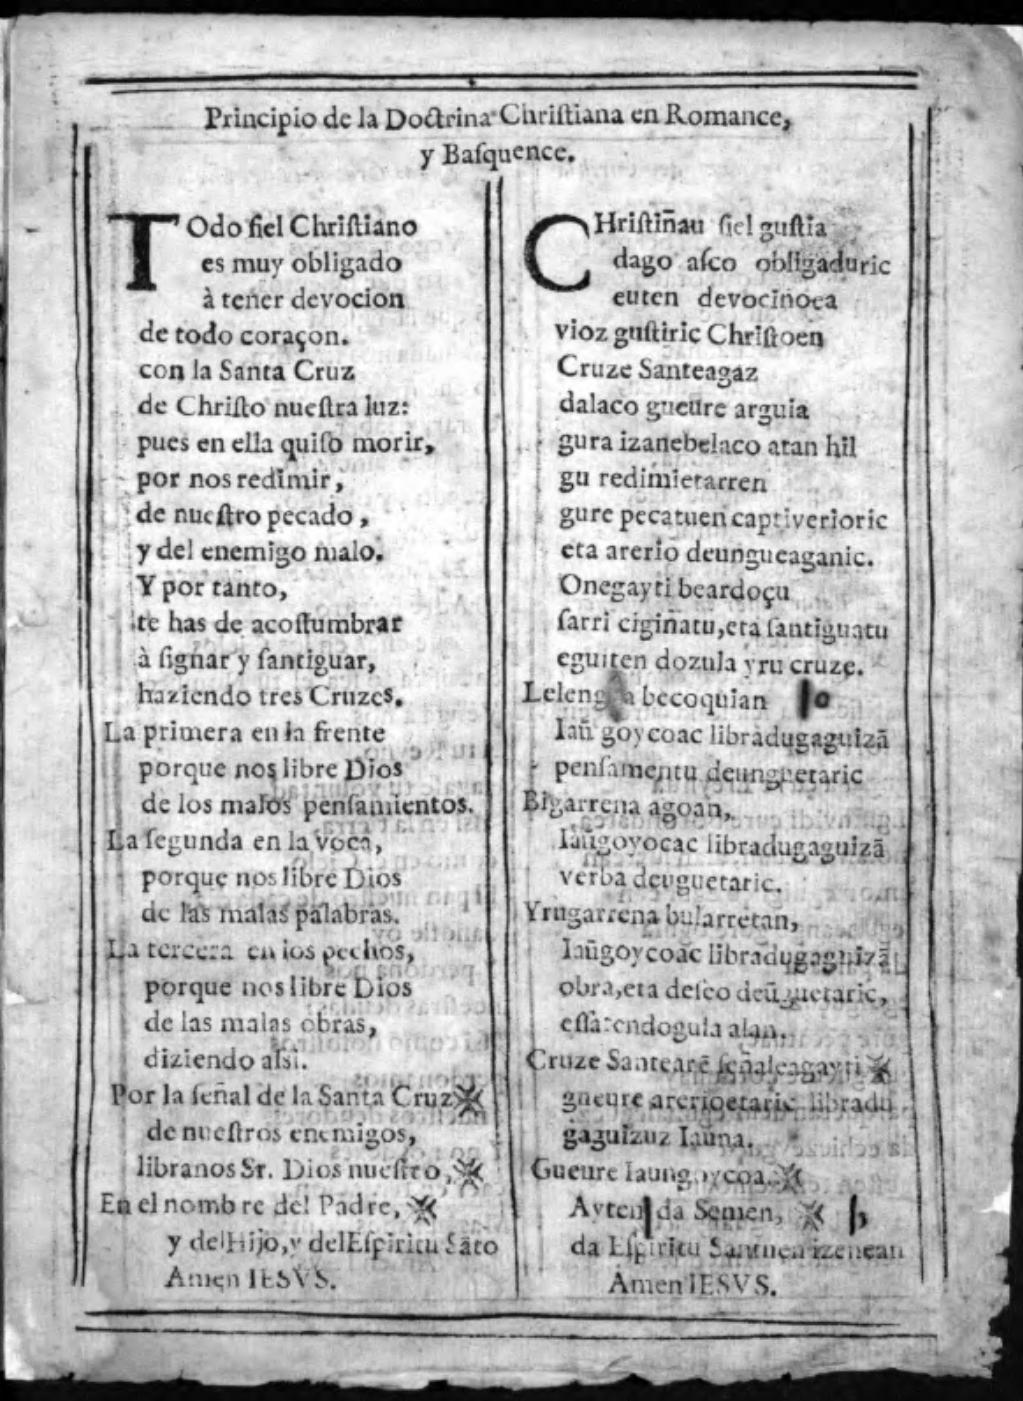 Principio de la Doctrina Chriſtiana en Romance,
y Baſquence.
TOdo fiel Chriſtiano
es muy obligado
à tener devocion
de todo coraçon.
con la Santa Cruz
de Chriſto nueſtra luz:
pues en ella quiſo morir,
por nos redimir,
de nueſtro pecado,
y del enemigo malo.
Y por tanto,
te has de acoſtumbrar
à ſignar y ſantiguar,
haziendo tres Cruzes.
La primera en la frente
porque nos libre Dios
de los malos penſamientos.
La ſegunda en la voca,
porque nos libre Dios
de las malas palabras.
La tercera en los pechos,
porque nos libre Dios
de las malas obras,
diziendo aſsi.
Por la ſeñal de la Santa Cruz
de nueſtros enemigos,
libranos Sr. Dios nueſtro,
En el nombre del Padre,
y del Hijo, y del Eſpiritu Sãto
Amen IESVS.
CHriſtiñau fiel guſtia
dago aſco obligaduric
euten devociñoea
vioz guſtiric Chriſtoen
Cruze Santeagaz
dalaco gueure arguia
gura izanebelaco atan hil
gu redimietarren
gure pecatuen captiverioric
eta arerio deungueaganic.
Onegayti beardoçu
ſarri ciginatu, eta ſantiguatu
eguiten dozula yru cruze.
becoquian
Iaũ goycoac libradugaguizã
penſamentu deunguetaric
Bigarrena agoan,
Iaũgoyocac libradugaguizã
verba deuguetaric.
Yrugarrena bularretan,
Iaũgoycoac libradugaguizã
obra, eta deſeo deũguetaric,
eſſatendogula alan.
Cruze Santearẽ ſeñaleagayti
gueure arerioetaric libradu
gaguizuz Iauna.
Gueure Iaungoycoa.
Ayten da Semen,
da Eſpiritu Santuen izenean
Amen IESVS.